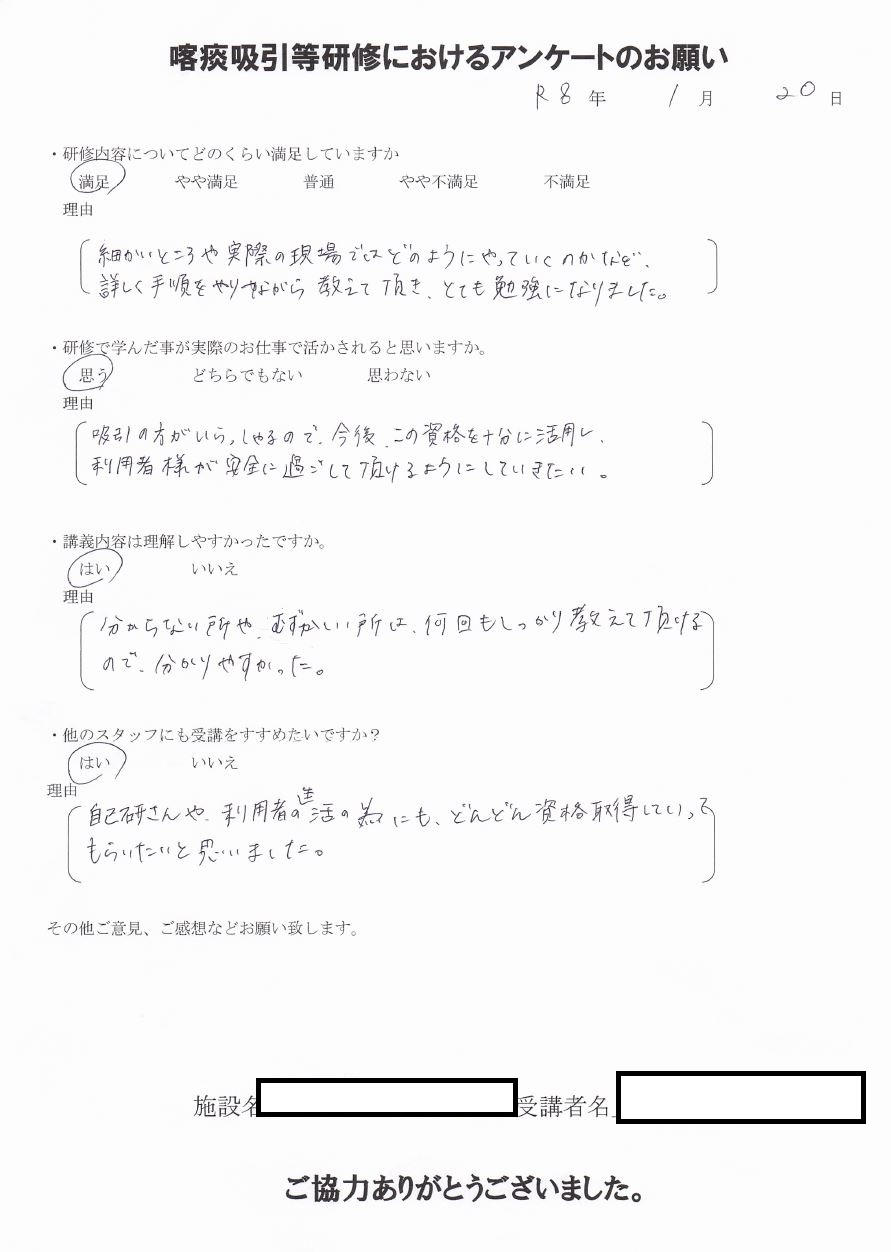 喀痰吸引等研修におけるアンケートのお願い
R8年 1月 20日
・研修内容についてどのくらい満足していますか
満足 やや満足 普通 やや不満足 不満足
理由
細かいところや実際の現場ではどのようにやっていくのかなど、
詳しく手順をやりながら教えて頂き、とても勉強になりました。
・研修で学んだ事が実際のお仕事で活かされると思いますか。
思う どちらでもない 思わない
理由
吸引の方がいらっしゃるので、今後、この資格を十分に活用し、
利用者様が安全に過ごして頂けるようにしていきたい。
・講義内容は理解しやすかったですか。
はい いいえ
理由
分からない所や、むずかしい所は、何回もしっかり教えて頂ける
ので、分かりやすかった。
・他のスタッフにも受講をすすめたいですか?
はい いいえ
理由
自己研さんや、利用者の生活の為にも、どんどん資格取得していって
もらいたいと思いました。
その他ご意見、ご感想などお願い致します。
施設名 受講者名
ご協力ありがとうございました。